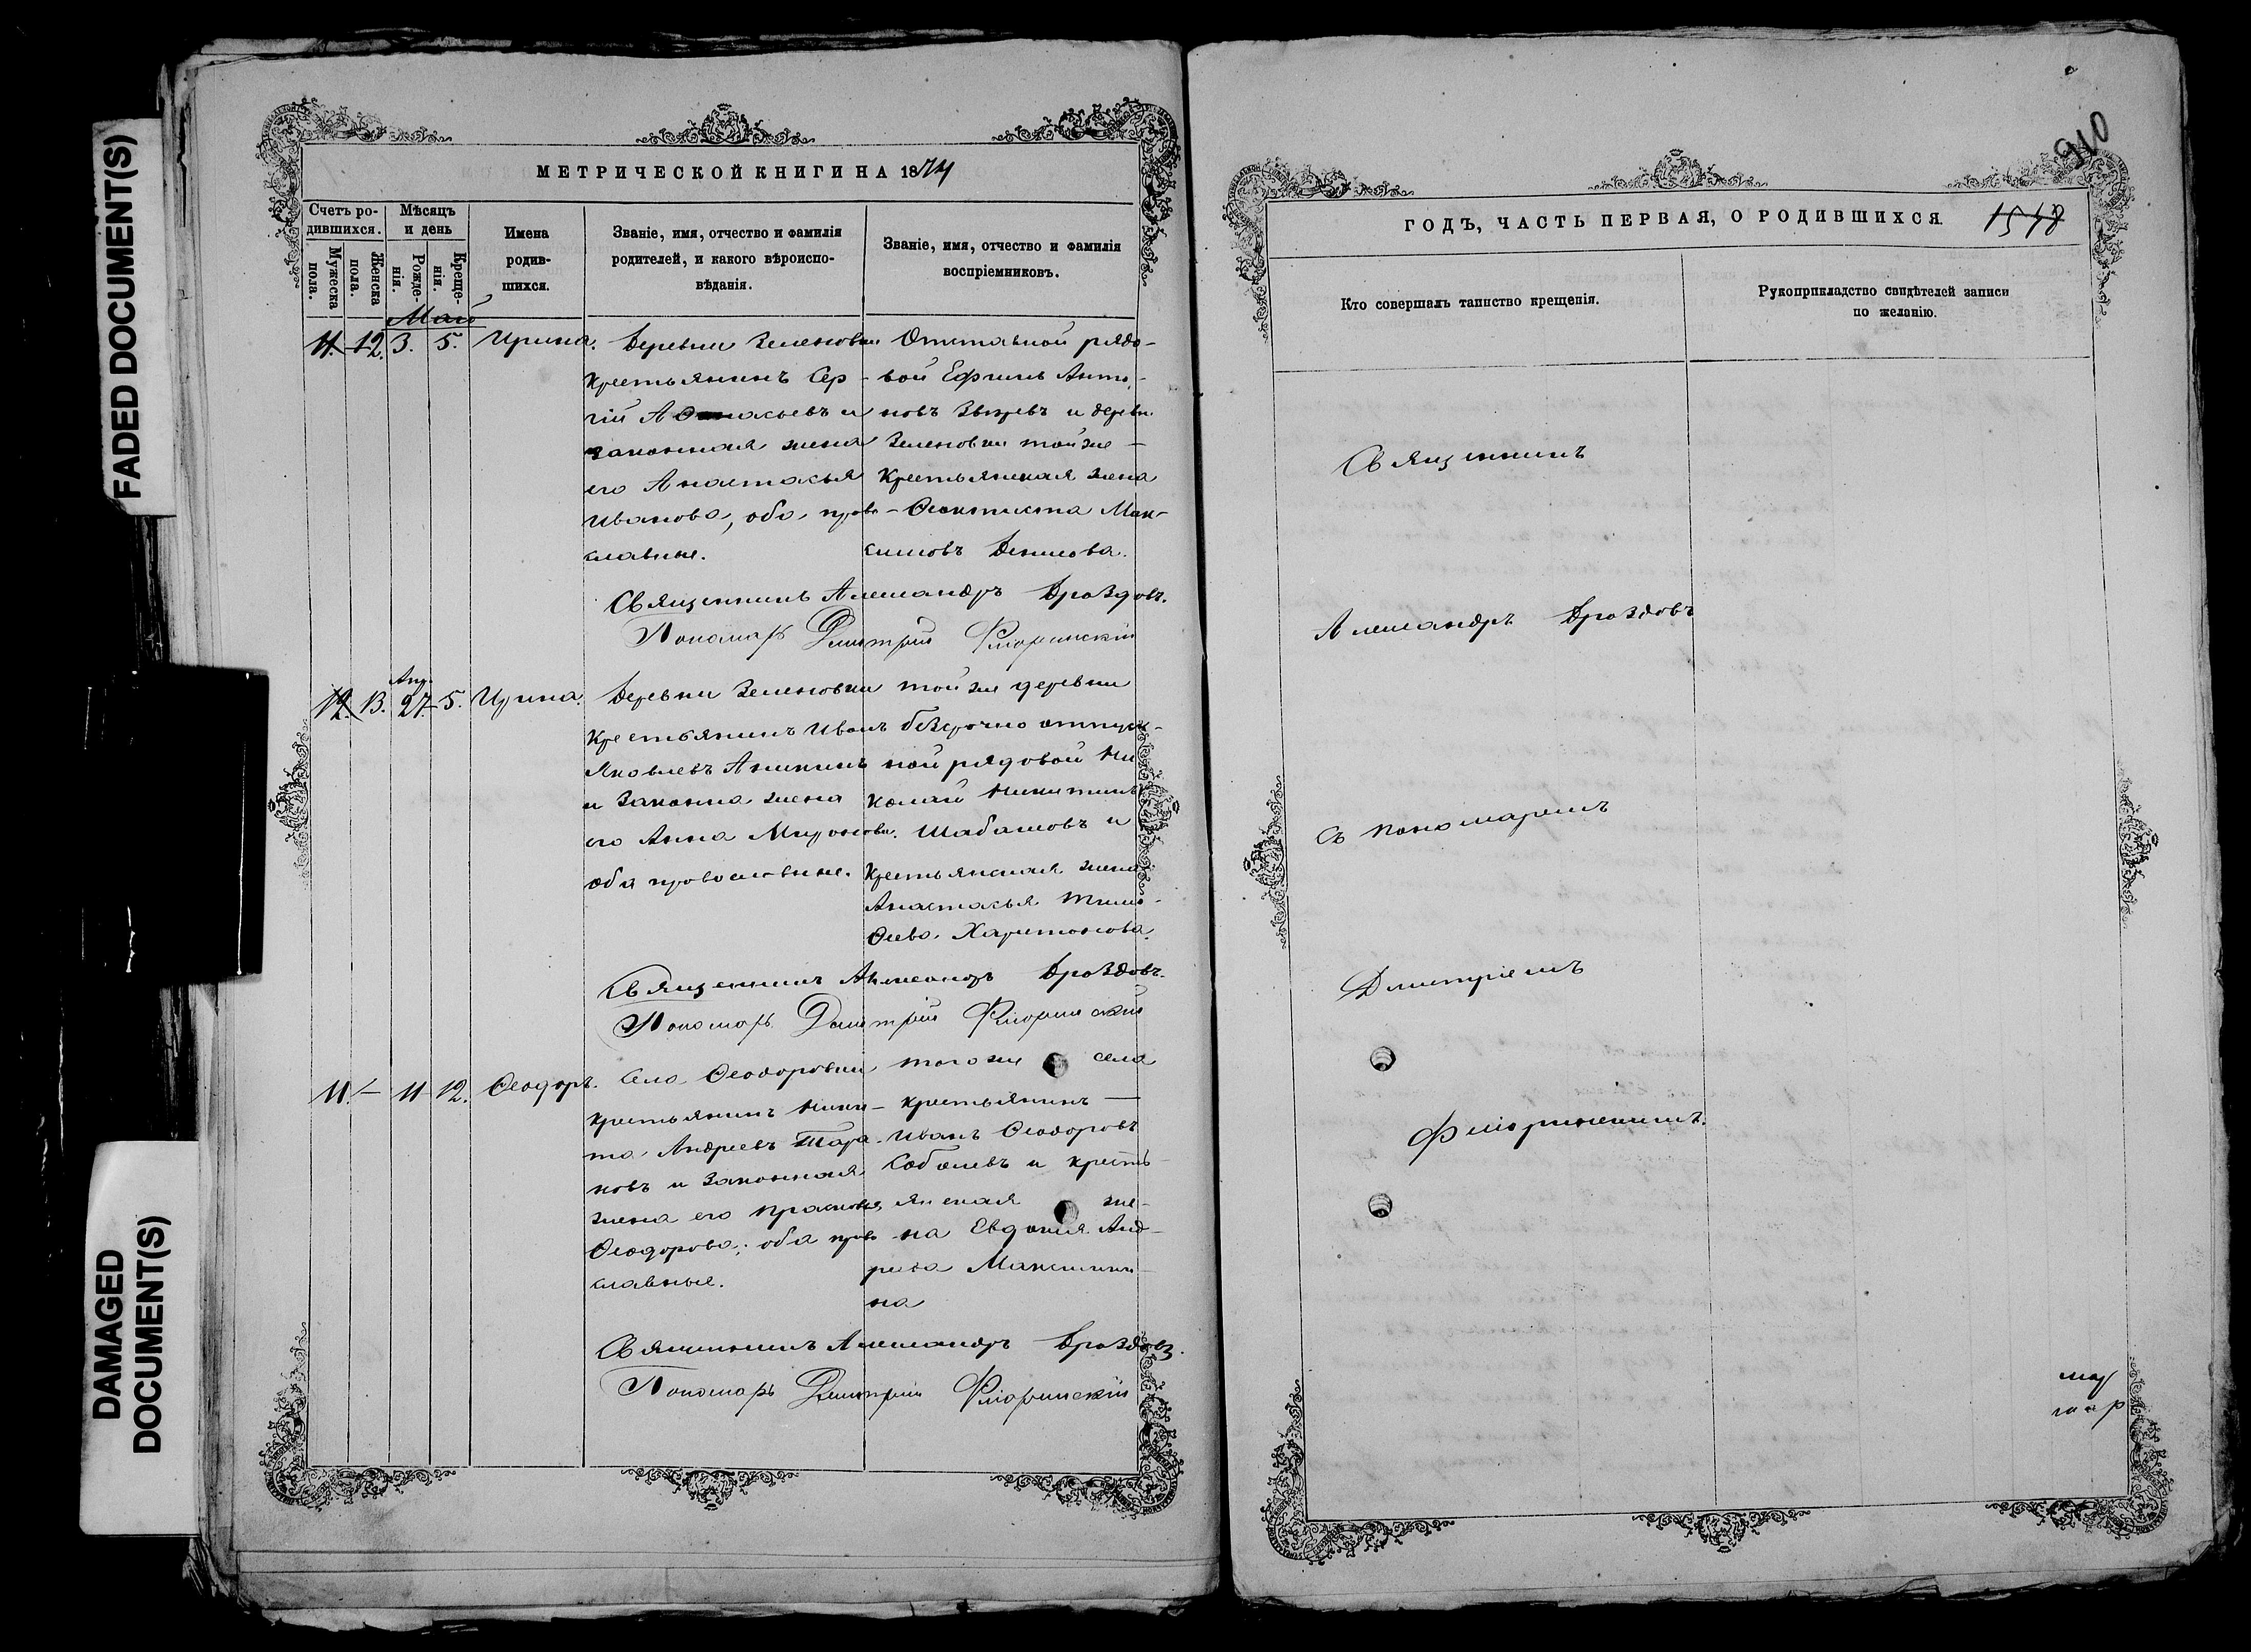 FADED DOCUMENT(S)
DAMAGED
DOCUMENT(S)
МЕТРИЧЕСКОЙ КНИГИ НА 1874
Счетъ ро-
дившихся.
Мужеска
пола.
Женска
пола.
Мѣсяцъ
и день
Рожде-
нія.
Креще-
нія.
Имена
родив-
шихся.
Званіе, имя, отчество и фамилія
родителей, и какого вѣроиспо-
вѣданія.
Званіе, имя, отчество и фамилія
воспріемниковъ.
Май
11. 12. 3. 5. Ирина.
Деревни Зеленовки
крестьянинъ Сер-
гій Аѳанасьевъ и
законная жена
его Анастасья
Иванова, оба право-
славные.
Отставной рядо-
вой Ефимъ Анто-
новъ Звѣревъ и деревн.
Зеленовки тойже
крестьянская жена
Ѳеоктиста Мак-
симовъ Денисова.
Священникъ Александръ Дроздовъ.
Пономарь Дмитрій Флоринскій
Апр.
12. 13. 27. 5. Ирина.
Деревни Зеленовки
крестьянинъ Иванъ
Яковлевъ Аникинъ
и законна жена
его Анна Миронова.
оба православные.
тойже деревни
безсрочно отпуск-
ной рядовой Ни
колай Никитинъ
Шабашовъ и
крестьянская жена
Анастасья Тимо-
ѳеева Харитонова.
Священникъ Александръ Дроздовъ.
Пономарь Дмитрій Флоринскій
11. – 11 12. Ѳеодоръ.
Села Ѳеодоровки
крестьянинъ Ники-
та Андреевъ Тара-
новъ и законная
жена его Прасковья
Ѳеодорова; оба право
славные.
тогоже села
крестьянинъ
Иванъ Ѳеодоровъ
Соболевъ и кресть-
янская же-
на Евдокия Анд-
реева Максимки-
на
Священникъ Александръ Дроздовъ.
Пономарь Дмитрій Флоринскій
910
ГОДЪ, ЧАСТЬ ПЕРВАЯ, О РОДИВШИХСЯ.
Кто совершалъ таинство крещенія.
Рукоприкладство свидѣтелей записи
по желанію.
Священникъ
Александръ Дроздовъ
съ пономаремъ
Дмитріемъ
Флоринскимъ.